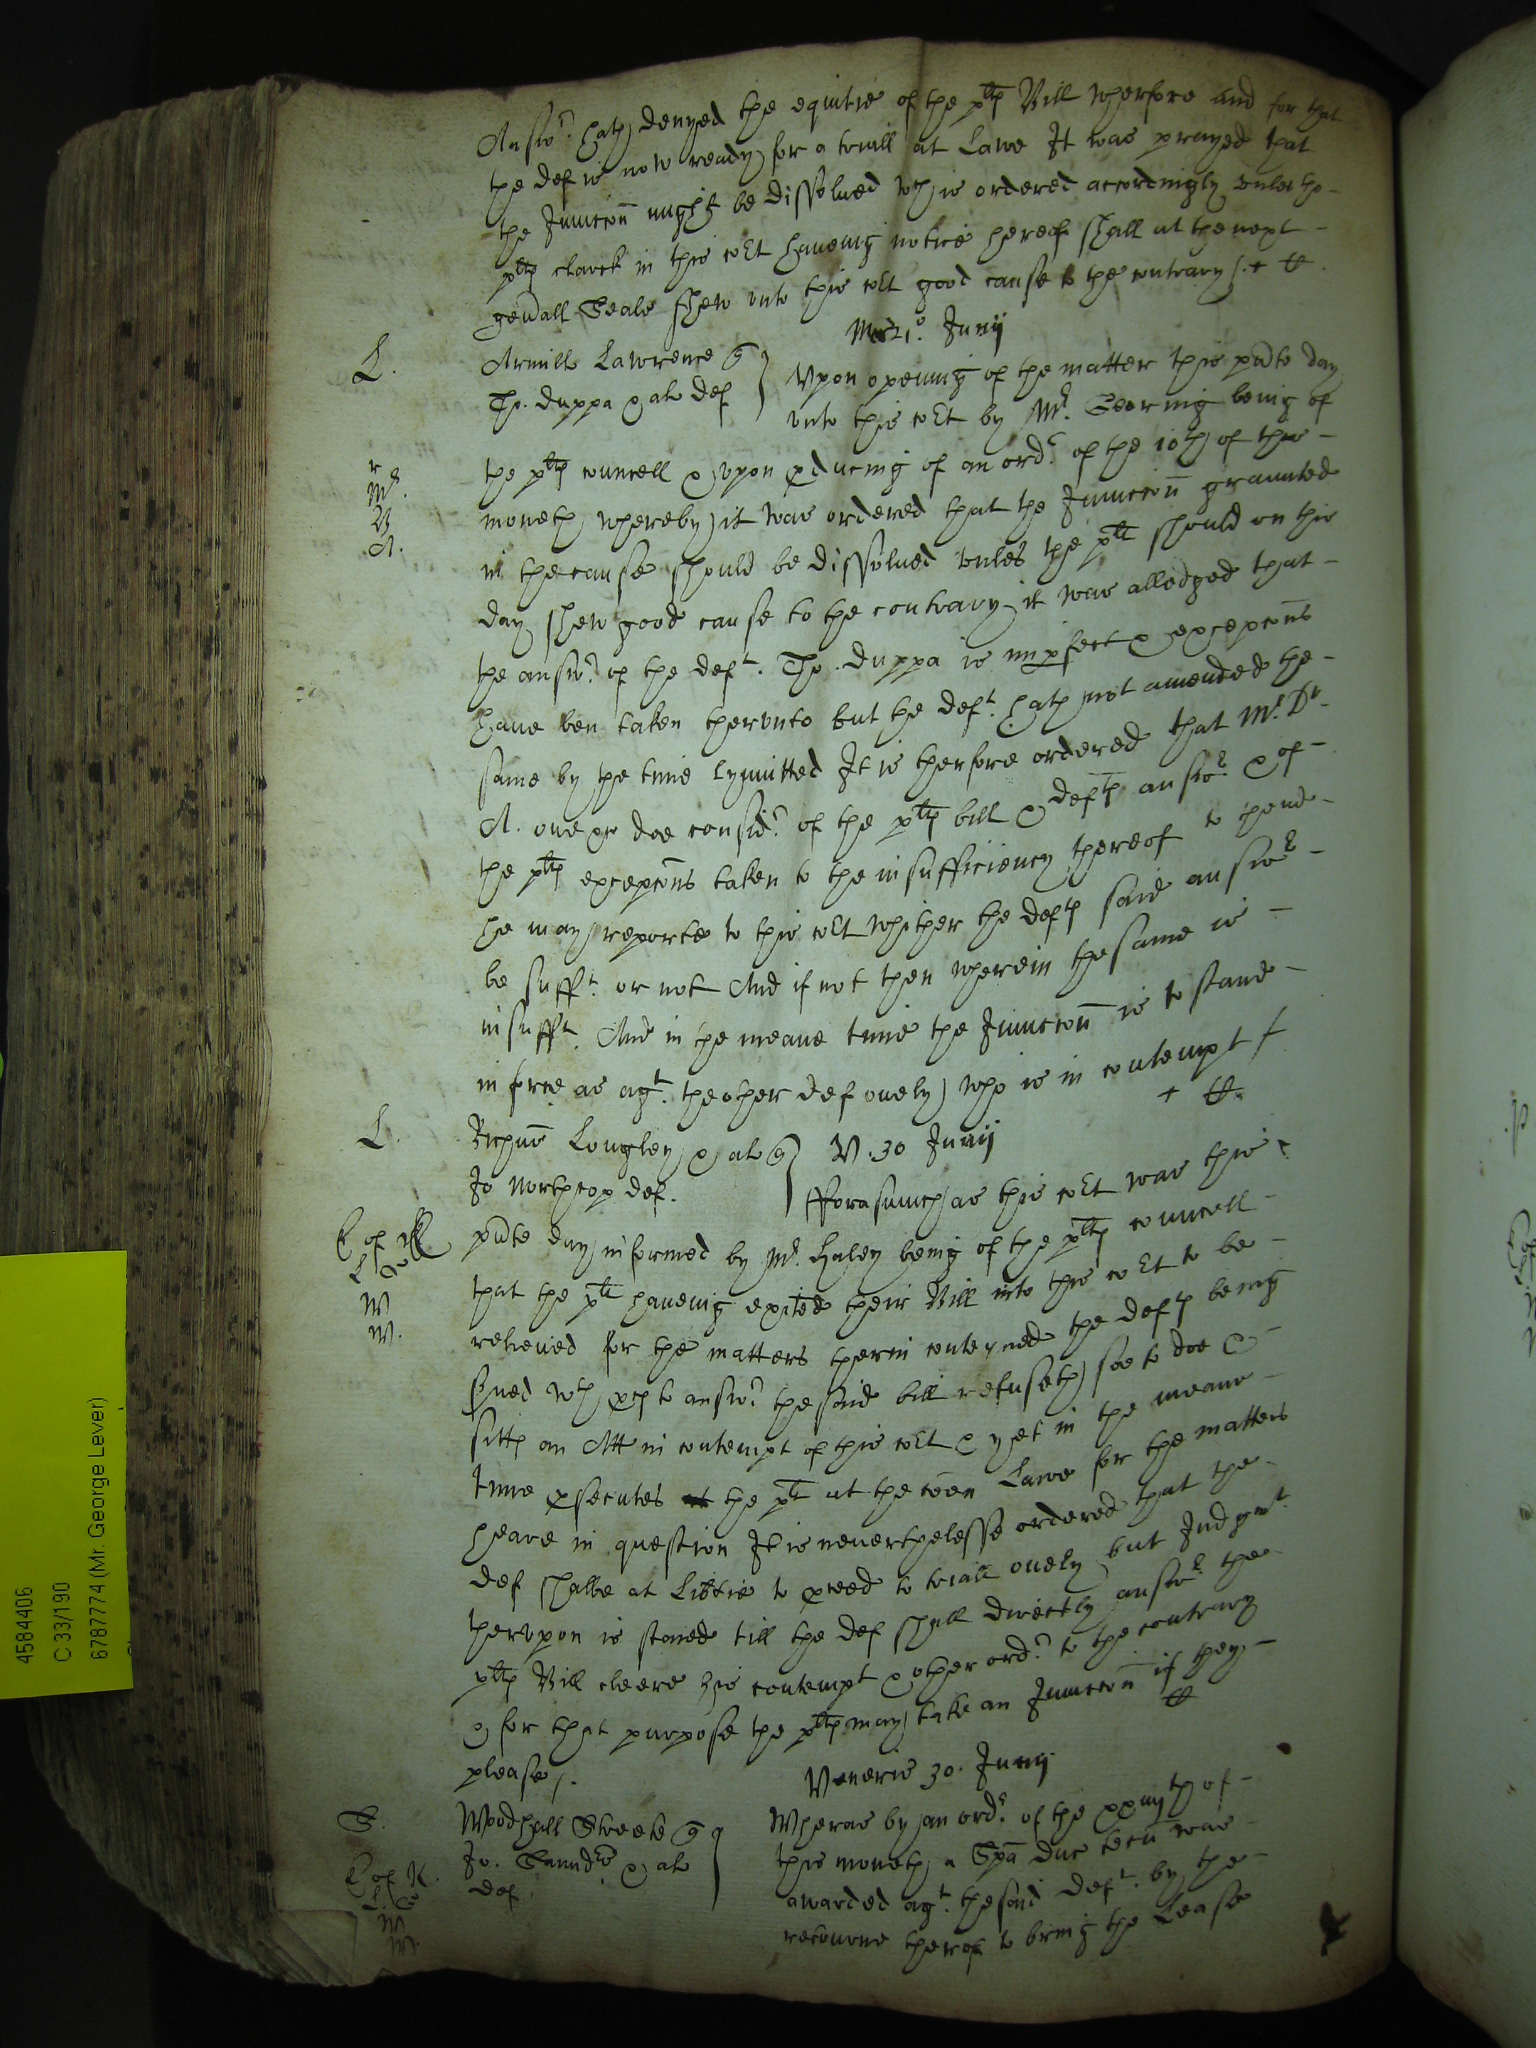 Answr. hath denyed the equitie of the pltes Bill wherfore and for that
the def is now ready for a triall at Lawe It was prayed that
the Iniunccon might be dissolued wch is ordered accordingly vnles the
pltes clarck in this co:rt haueing notice hereof shall at the next
gen:all Seale shew vnto this co:rt good cause to the contrary /. +
Mer 21o. Junij
L.
Lawrence q
Tho. duppa & al def
Vpon opening of the matter this pnte day
vnto this co:rt by Mr. Gearing being of
the pltes councell & vpon pducing of an ordr. of the 10th of this
r
Mr.
B
A.
moneth whereby it was ordered that the Iniunccon graunted
in the cause should be dissolued vnles the plt should on this
day shew good cause to the contrary it was alledged that
the answr. of the deft. Tho. duppa is impfect & excepcons
haue ben taken thervnto but the deft. hath not amended the
same by the time lymitted It is therfore ordered that Mr. Dr.
A. one &c doe consider. of the pltes bill & deftes answr. & of
the pltes excepcons taken to the insufficiency thereof to thend
he may reporte to this co:rt whither the deftes said answr
be sufft. or not And if not then wherein the same is
insufft. And in the meane time the Iniunccon is to stand
in force as agt. the other def onely who is in contempt /
+
L.
Longley & al q
Jo Northcop def.
V. 30 Junij
fforasmuch as this co:rt was this
pnte day informed by Mr. Haley being of the pltes councell
that the plt haueing exited their Bill into this co:rt to be
W
W.
relieued for the matters therin conteyned the deftes being
serued wth pces to answr. the said bill refuseth soe to doe &
sitts an Att in contempt of this co:rt & yet in the meane
time psecutes the plt at the coen Lawe for the matters
heare in question It is neuerthelesse ordered that the
def shalbe at Libtie to pceed to triall onely but Iudgmt.
thervpon is staied till the def shall directly answr. the
pltes Bill cleere his contempt & other ordr. to the contrary
& for that purpose the pltes may take an Iniunccon if they
please /.
Veneris 30. Junij
S.
Woodhall Streete q
Jo. Saundrs & al
def
Wheras by an ordr. of the xxiijth of
this moneth a Spa duc tecu was
awarded agt. the said deft. by the
retourne therof to bring the Lease
4584406
C 33/190
6787774 (Mr. George Lever)